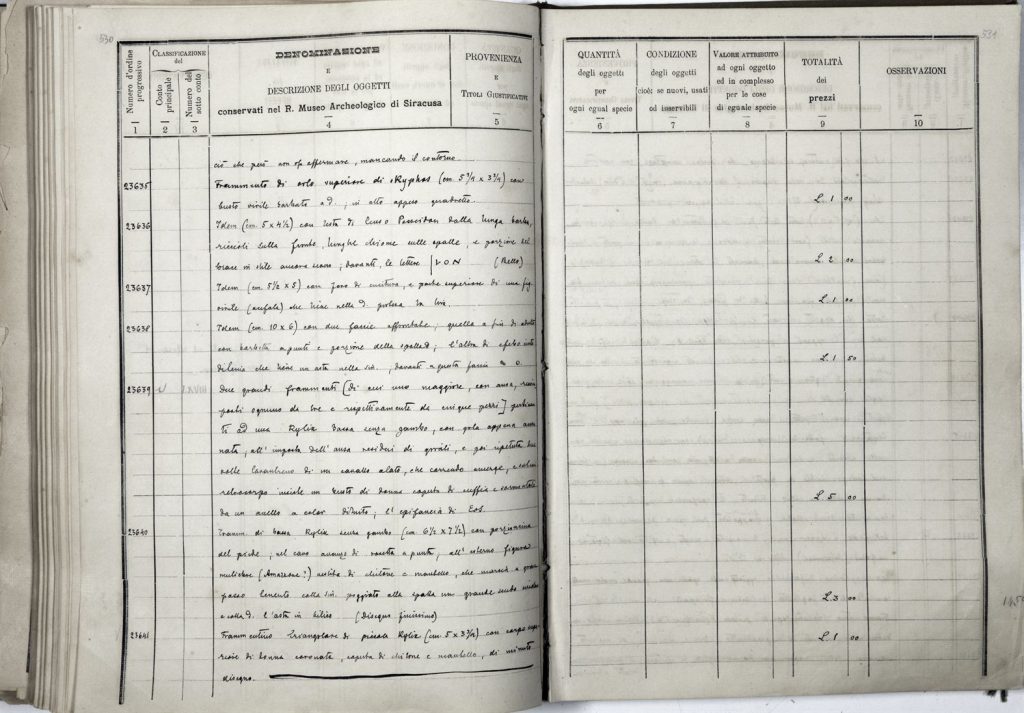 530
Numero d'ordine progressivo
1
CLASSIFICAZIONE del
Conto principale
2
Numero del sotto conto
3
DENOMINAZIONE
E
DESCRIZIONE DEGLI OGGETTI
conservati nel R. Museo Archeologico di Siracusa
4
PROVENIENZA
E
TITOLI GIUSTIFICATIVI
5
ciò che però non oso affermare, mancando il contorno.
23635 Frammento di orlo superiore di skyphos (cm 5 3/4 x 3 3/4) con
busto virile barbato a d.; in alto appeso quadretto.
23636 Idem (cm. 5 x 4 1/2) con testa di Poseidon dalla lunga barba,
riccioli sulla fronte, lunghe chiome sulle spalle, e porzione del
davanti, le lettere VON (Bello)
23637 Idem (cm. 5 1/2 x 5) con e parte superiore di una fig.
virile che tiene nella d. protesa la lira.
23638 Idem (cm. 10 x 6) con due facce affrontate; quella a
con barbetta a punti e porzione della spalla; l'altra di efebo
che tiene un asta nella sin.; davanti a questa
23639 Due grandi frammenti [di cui uno maggiore, con ansa,
ognuno da tre e rispettivamente da cinque pezzi]
ad una Kylix bassa senza gambo, con gola appena
all'imposta dell'ansa residui di e poi ripetuta due
volte di un cavallo alato, che correndo emerge,
un busto di donna caputa di cuffia e
da un anello a color diluito; l'epifania di Eos.
23640 Framm. di bassa Kylix senza gambo (cm. 6 1/2 x 7 1/2) con porzioncina
del piede; nel cavo avanzo di rosetta a punti, all'esterno figura
muliebre (Amazone?) vestita di chitone e mantello, che marcia a gran
passo tenente colla sin. poggiato alla spalla un grande scudo
e colla d. l'asta in bilico (Disegno finissimo)
23641 Frammentino triangolare di piccola Kylix (cm. 5 x 3 3/4) con corpo
di donna coronata, caputa di chitone e mantello, di minuto
disegno.
531
QUANTITÀ
degli oggetti
per
ogni egual specie
6
CONDIZIONE
degli oggetti
cioè: se nuovi, usati
od inservibili
7
VALORE ATTRIBUITO
ad ogni oggetto
ed in complesso
per le cose
di eguale specie
8
TOTALITÀ
dei
prezzi
9
OSSERVAZIONI
10
L. 1 00
L. 2 00
L. 1 00
L. 1 50
L. 5 00
L. 3 00
L. 1 00